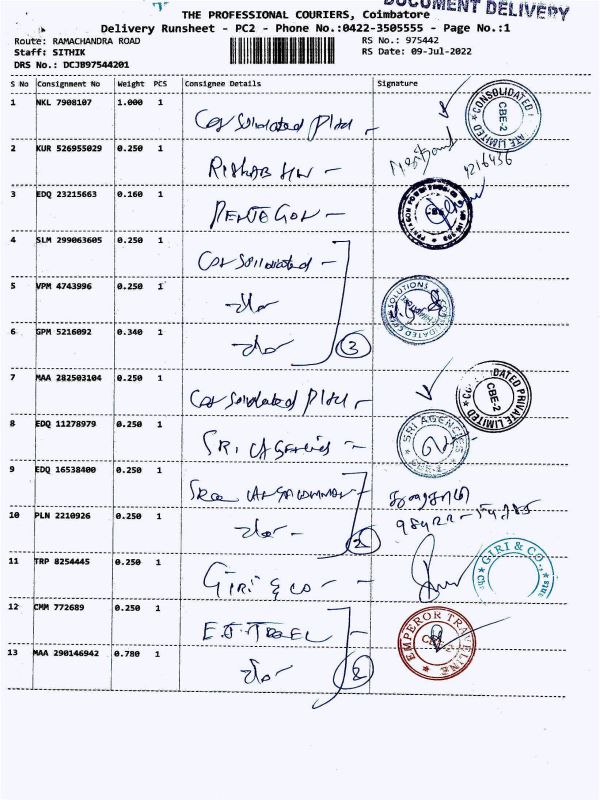 DOCUMENT DELIVERY
THE PROFESSIONAL COURIERS, Coimbatore
Delivery Runsheet - PC2 - Phone No.:0422-3505555 - Page No.:1
Route: RAMACHANDRA ROAD RS No.: 975442
Staff: SITHIK RS Date: 09-Jul-2022
DRS No.: DCJB97544201
S No Consignment No Weight PCS Consignee Details Signature
1 NKL 7908107 1.000 1 Consolidated Pvtd -
CONSOLIDATED PRIVATE LIMITED CBE-2
2 KUR 526955029 0.250 1
3 EDQ 23215663 0.160 1 PENTAGON -
4 SLM 299063605 0.250 1 Consolidated -
5 VPM 4743996 0.250 1 -do-
6 GPM 5216092 0.340 1 -do- 3
7 MAA 282503104 0.250 1 Consolidated Pvtd -
CONSOLIDATED PRIVATE LIMITED CBE-2
8 EDQ 11278979 0.250 1 SRI Agencies -
SRI AGENCIES CBE-2
9 EDQ 16538400 0.250 1
10 PLN 2210926 0.250 1 -do- 2
11 TRP 8254445 0.250 1 GIRI & CO - -
GIRI & CO.,
12 CMM 772689 0.250 1 E.T. TRAVEL -
EMPEROR TRAVELINE CBE-2
13 MAA 290146942 0.780 1 -do- 2